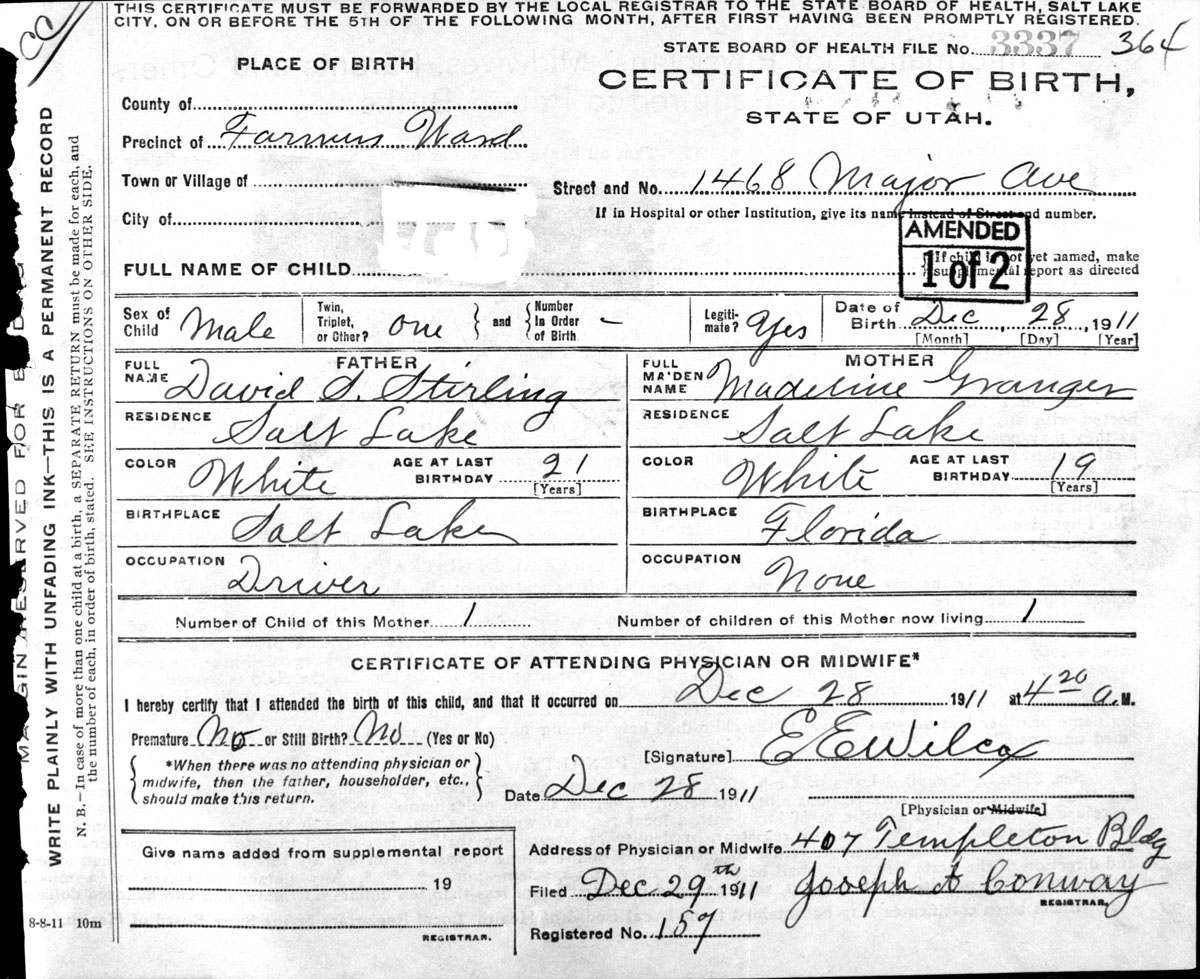 THIS CERTIFICATE MUST BE FORWARDED BY THE LOCAL REGISTRAR TO THE STATE BOARD OF HEALTH, SALT LAKE
CITY, ON OR BEFORE THE 5TH OF THE FOLLOWING MONTH, AFTER FIRST HAVING BEEN PROMPTLY REGISTERED.
STATE BOARD OF HEALTH FILE No. 3337 364
PLACE OF BIRTH
CERTIFICATE OF BIRTH,
STATE OF UTAH.
County of
Precinct of Farmers Ward
Town or Village of
Street and No. 1468 Major Ave
City of
If in Hospital or other Institution, give its name instead of Street and number.
AMENDED
1 of 2
FULL NAME OF CHILD
If child is not yet named, make
supplemental report as directed
Sex of Child Male
Twin, Triplet, or Other? one and Number In Order of Birth –
Legiti-mate? Yes
Date of Birth Dec, 28, 1911
[Month] [Day] [Year]
FATHER
FULL NAME David S. Stirling
RESIDENCE Salt Lake
COLOR White AGE AT LAST BIRTHDAY 21 [Years]
BIRTHPLACE Salt Lake
OCCUPATION Driver
MOTHER
FULL MAIDEN NAME Madeline Granger
RESIDENCE Salt Lake
COLOR White AGE AT LAST BIRTHDAY 19 [Years]
BIRTHPLACE Florida
OCCUPATION None
Number of Child of this Mother 1 Number of children of this Mother now living 1
CERTIFICATE OF ATTENDING PHYSICIAN OR MIDWIFE*
I hereby certify that I attended the birth of this child, and that it occurred on Dec 28 1911 at 4 20 a.M.
Premature No or Still Birth? No (Yes or No)
[Signature] E E Wilcox
*When there was no attending physician or
midwife, then the father, householder, etc.,
should make this return.
Date Dec 28 1911
[Physician or Midwife]
Give name added from supplemental report
19
REGISTRAR.
Address of Physician or Midwife 407 Templeton Bldg
Filed Dec 29th 1911 Joseph A Conway
REGISTRAR.
Registered No. 107
8-8-11 10m
WRITE PLAINLY WITH UNFADING INK—THIS IS A PERMANENT RECORD
N. B.—In case of more than one child at a birth, a SEPARATE RETURN must be made for each, and
the number of each, in order of birth, stated. SEE INSTRUCTIONS ON OTHER SIDE.
MARGIN RESERVED FOR